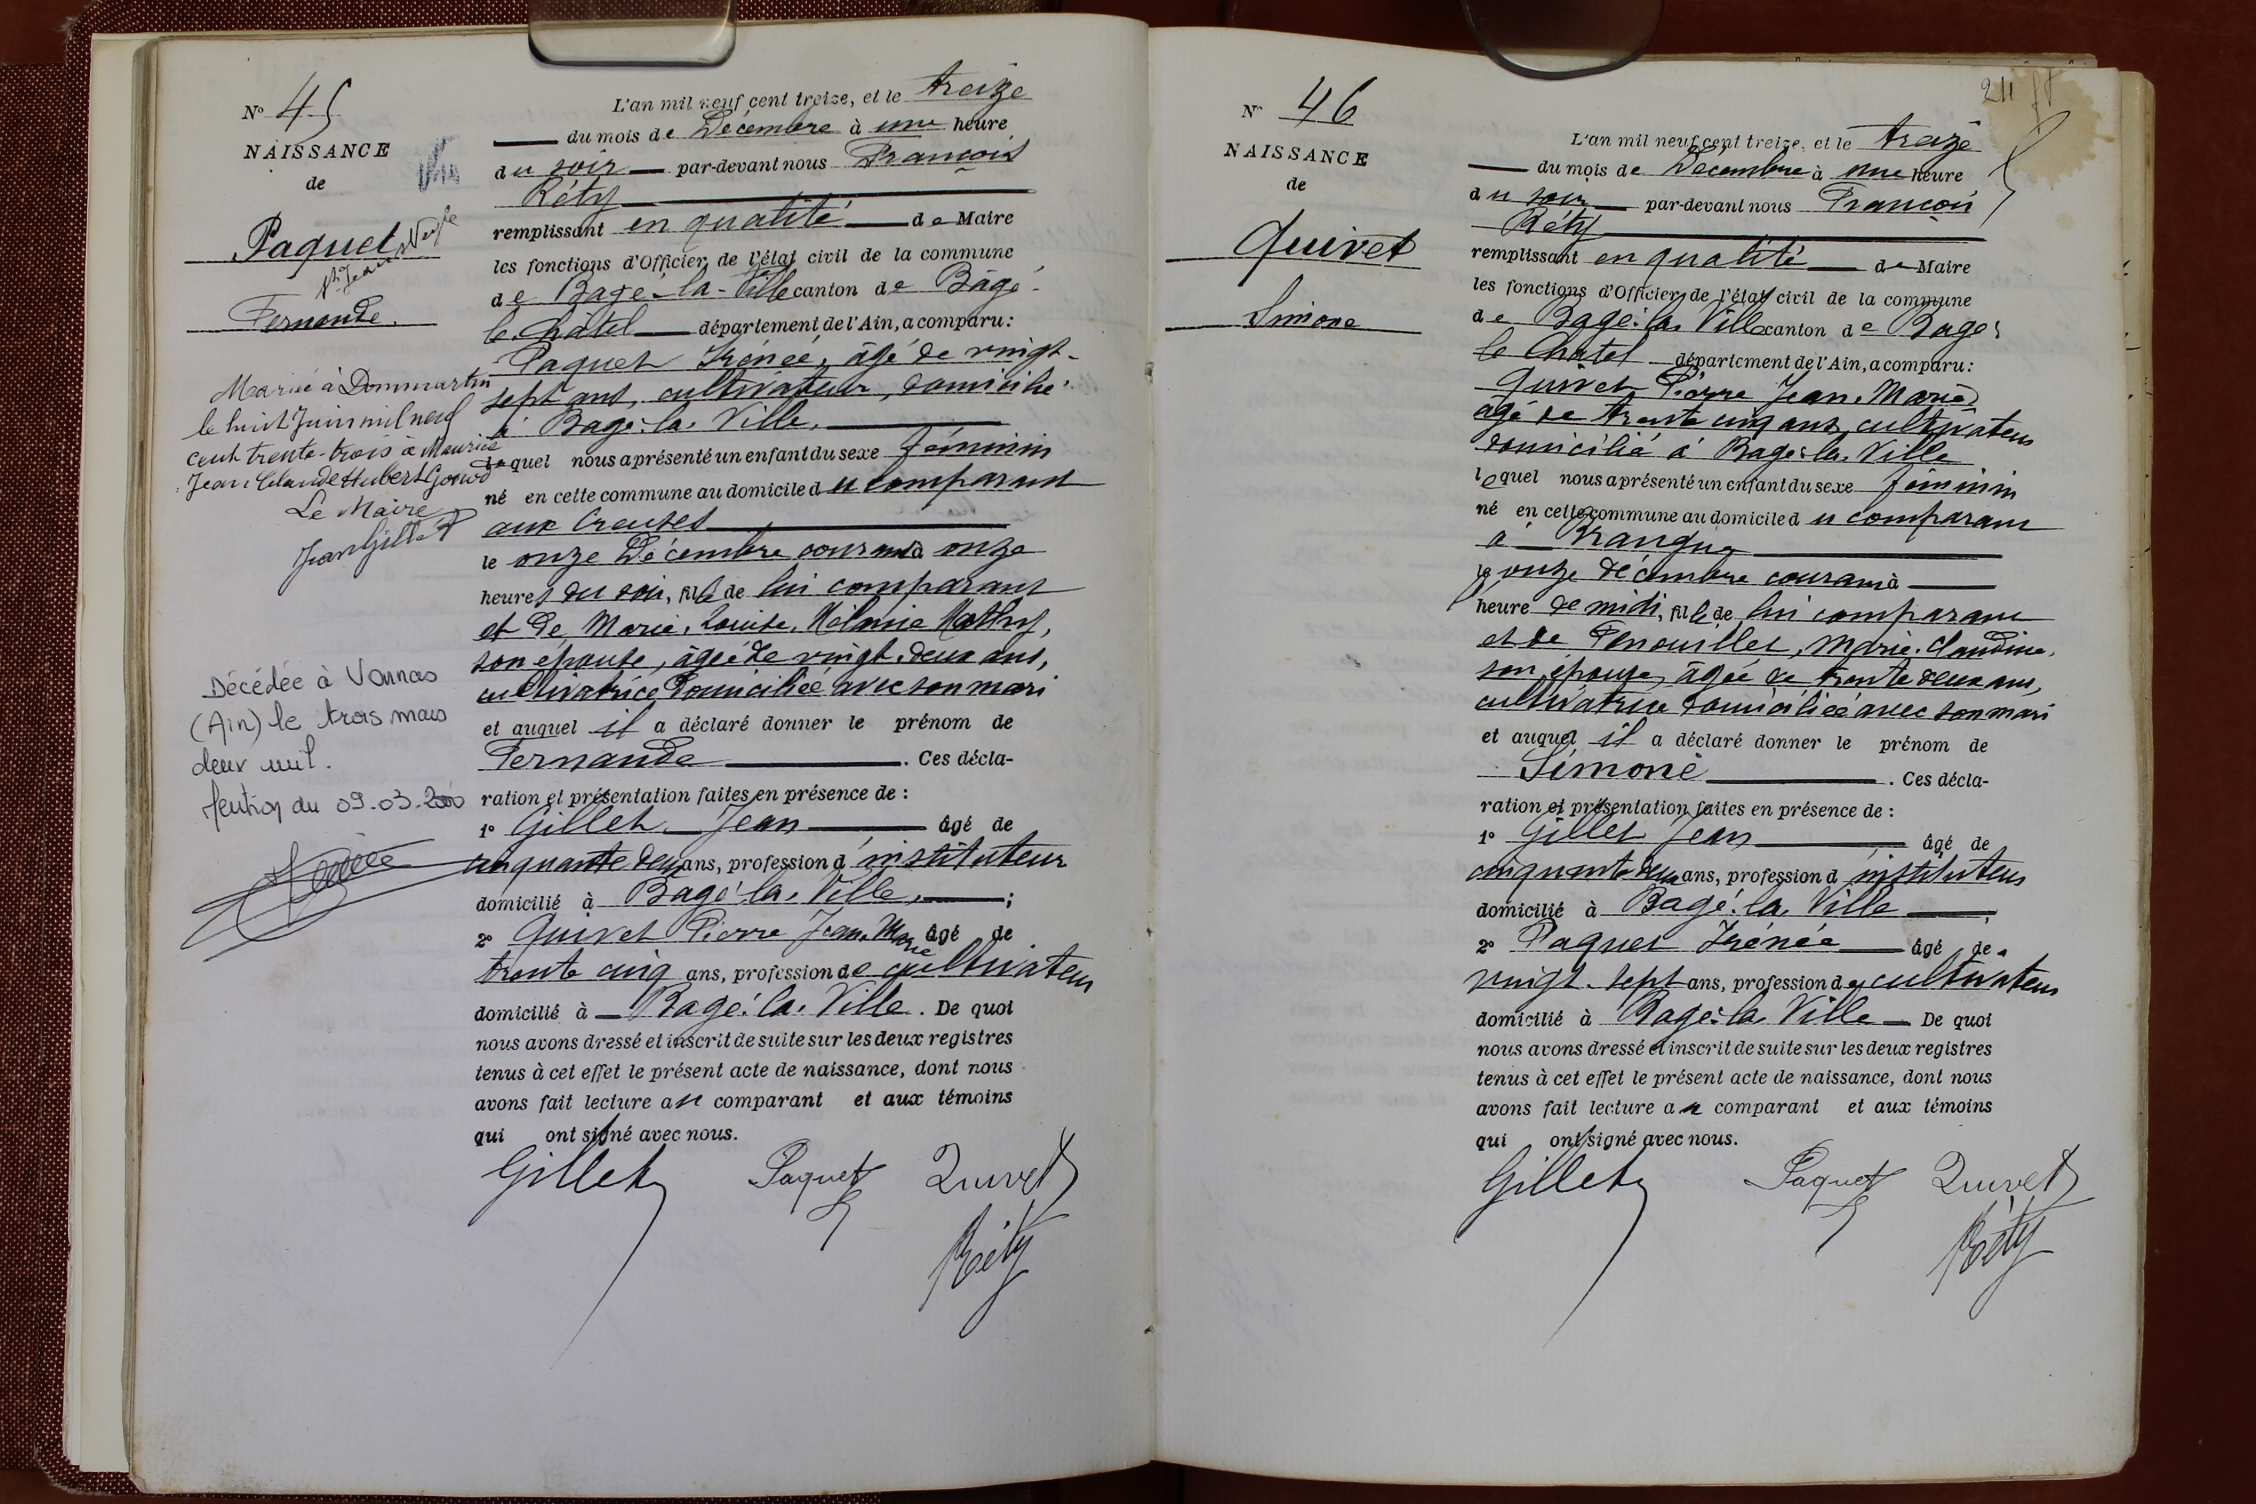 N° 45
NAISSANCE
de
Paquet
Fernande.
Mariée à Dommartin
le huit Juin mil neuf
cent trente-trois à Maurice
Jean Claude Hubert
Le Maire
Jean Gillet
Décédée à Vonnas
(Ain) le trois mars
deux mil.
Mention du 09.03.2000
L'an mil neuf cent treize, et le treize
du mois de Décembre à une heure
du soir par-devant nous François
Réty
remplissant en qualité de Maire
les fonctions d'Officier de l'état civil de la commune
de Bagé-la-Ville canton de Bagé-
le Châtel département de l'Ain, a comparu :
Paquet Irénée, âgé de vingt-
sept ans, cultivateur, domicilié
à Bagé-la-Ville,
lequel nous a présenté un enfant du sexe féminin
né en cette commune au domicile du comparant
aux Creuses
le onze Décembre courant à onze
heures du soir, fille de lui comparant
et de Marie, Louise, Mélanie
son épouse, âgée de vingt-deux ans,
cultivatrice domiciliée avec son mari
et auquel il a déclaré donner le prénom de
Fernande . Ces décla-
ration et présentation faites en présence de :
1° Gillet Jean âgé de
cinquante deux ans, profession d'instituteur
domicilié à Bagé-la-Ville, ;
2° Quivet Pierre Jean-Marie âgé de
trente cinq ans, profession de cultivateur
domicilié à Bagé-la-Ville. De quoi
nous avons dressé et inscrit de suite sur les deux registres
tenus à cet effet le présent acte de naissance, dont nous
avons fait lecture au comparant et aux témoins
qui ont signé avec nous.
Gillet Paquet Quivet
Réty
N° 46
NAISSANCE
de
Quivet
Simone
L'an mil neuf cent treize, et le treize
du mois de Décembre à une heure
du soir par-devant nous François
Réty
remplissant en qualité de Maire
les fonctions d'Officier de l'état civil de la commune
de Bagé-la-Ville canton de Bagé-
le Chatel département de l'Ain, a comparu :
Quivet Pierre Jean-Marie
âgé de trente cinq ans, cultivateur
domicilié à Bagé-la-Ville
lequel nous a présenté un enfant du sexe féminin
né en cette commune au domicile du comparant
à
le onze décembre courant à
heure de midi, fille de lui comparant
et de Fenouillet, Marie-Claudine,
son épouse, âgée de trente deux ans,
cultivatrice domiciliée avec son mari
et auquel il a déclaré donner le prénom de
Simone . Ces décla-
ration et présentation faites en présence de :
1° Gillet Jean âgé de
cinquante deux ans, profession d'instituteur
domicilié à Bagé-la-Ville ;
2° Paquet Irénée âgé de
vingt-sept ans, profession de cultivateur
domicilié à Bagé-la-Ville De quoi
nous avons dressé et inscrit de suite sur les deux registres
tenus à cet effet le présent acte de naissance, dont nous
avons fait lecture au comparant et aux témoins
qui ont signé avec nous.
Gillet Paquet Quivet
Réty